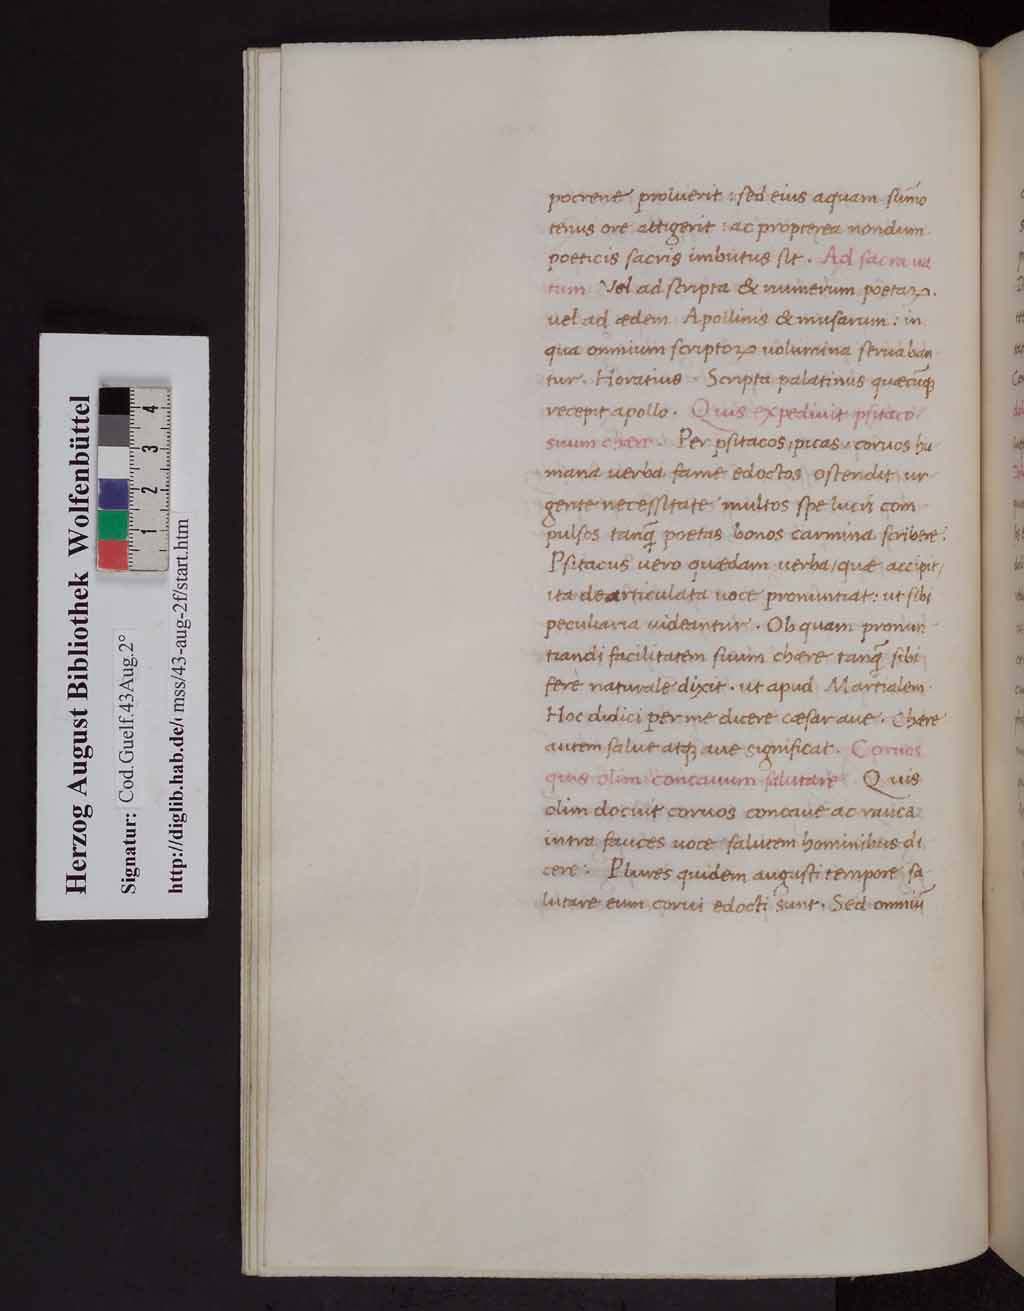 pocrene proluerit : sed eius aquam sūmo
tenus ore attigerit : ac propterea nondum
poeticis sacris imbutus sit . Ad sacra ua
tum Vel ad scripta & numerum poetaꝝ .
uel ad ædem Apollinis & musarum : in
qua omnium scriptoꝝ uolumina seruaban
tur . Horatius . Scripta palatinus quæcūqꝫ
recepit apollo . Quis expediuit psitaco
suum chære . Per psitacos / picas / coruos hu
mana uerba fame edoctos ostendit ur
gente necessitate multos spe lucri com
pulsos tanq̄ poetas bonos carmina scribere .
Psitacus uero quædam uerba / quæ accipit /
ita dearticulata uoce pronuntiat : ut sibi
peculiaria uideantur . Ob quam pronun
tiandi facilitatem suum chære tanq̄ sibi
fere naturale dixit . ut apud Martialem
Hoc didici per me dicere cæsar aue . Chære
autem salue atqꝫ aue significat . Coruos
quis olim concauum salutare Quis
olim docuit coruos concaue ac rauca
intra fauces uoce salutem hominibus di
cere : Plures quidem augusti tempore sa
lutare eum corui edocti sunt . Sed omniū
Herzog August Bibliothek Wolfenbüttel
Signatur: Cod.Guelf.43Aug.2°
http://diglib.hab.de/ mss/43-aug-2f/start.htm
1 2 3 4